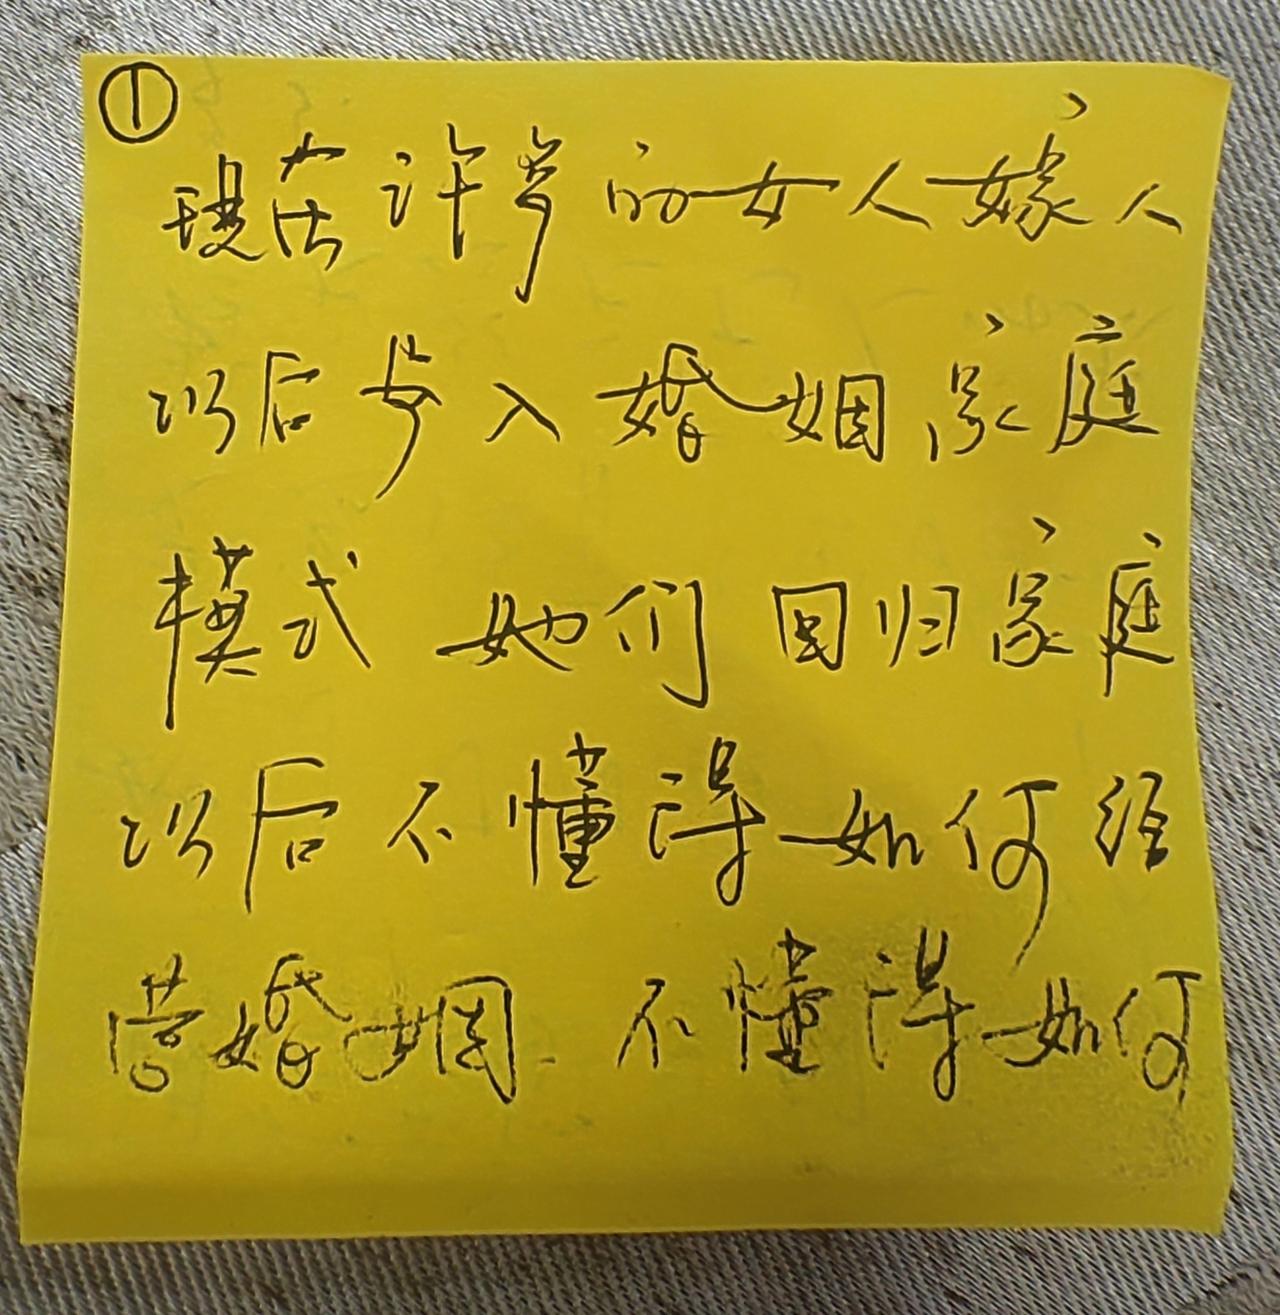 ①
现在许多的女人嫁人
以后步入婚姻家庭
模式 她们 回归家庭
以后不懂得如何经
营婚姻. 不懂得如何